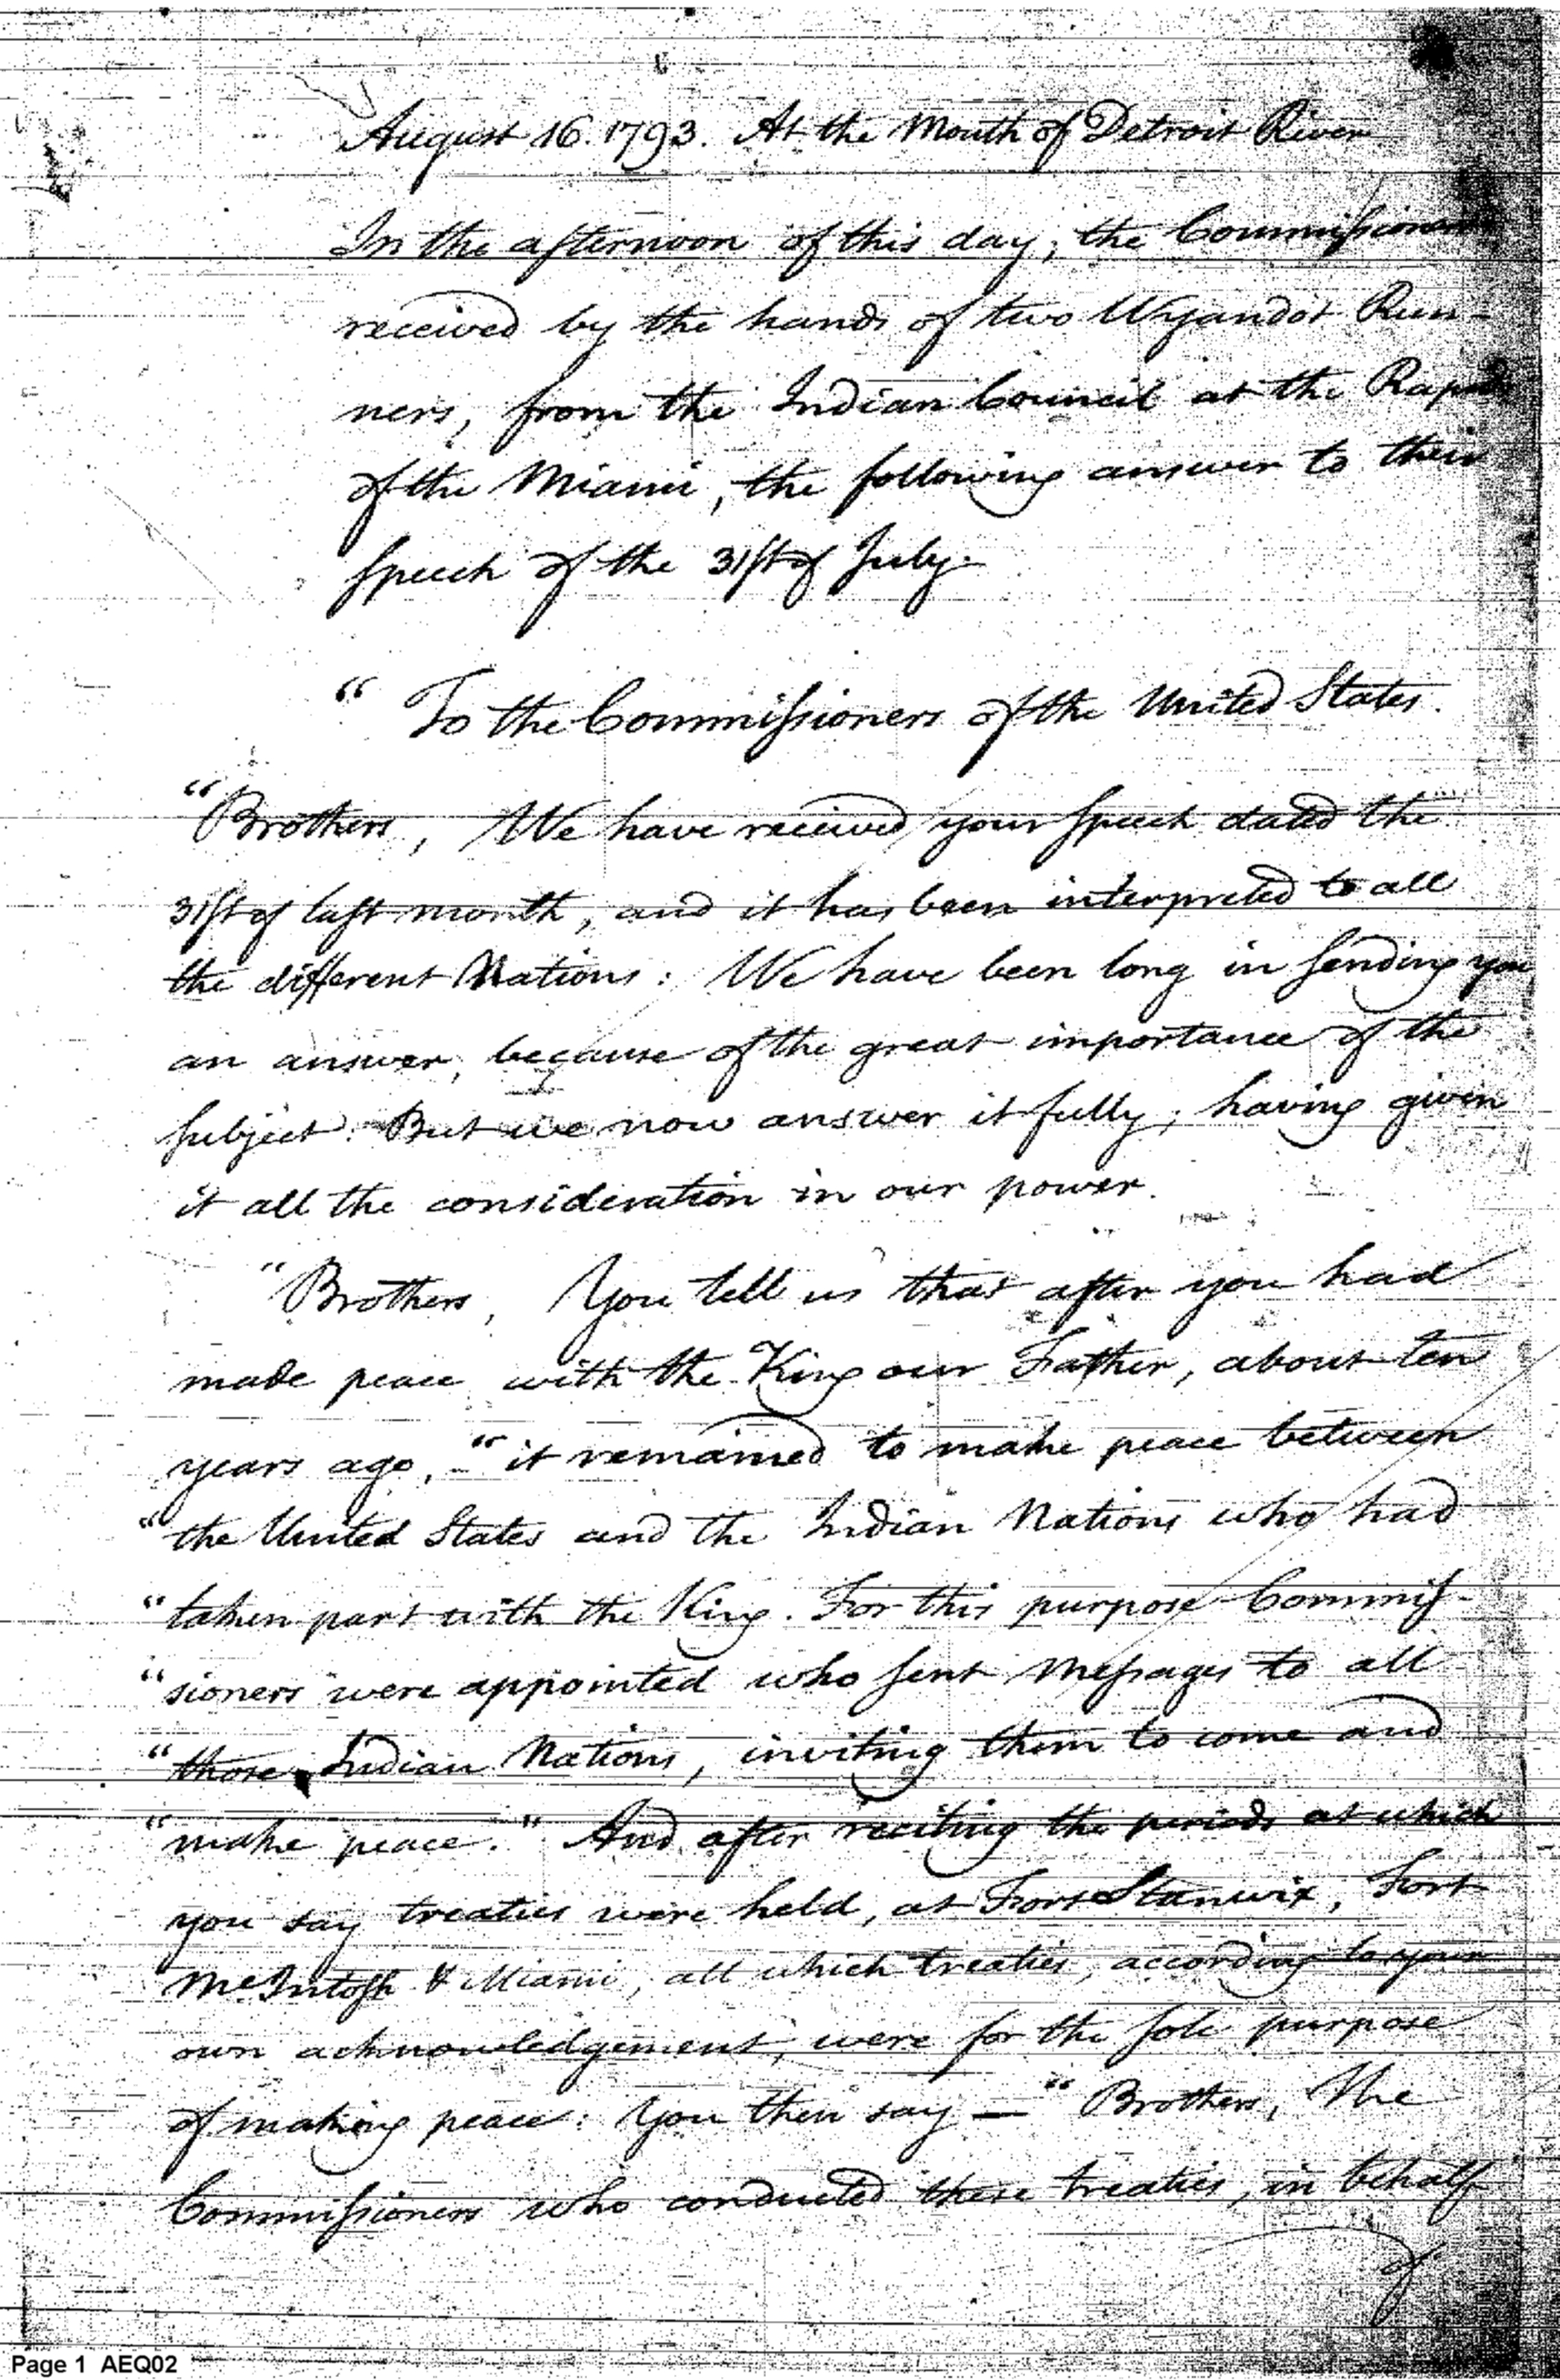 August 16. 1793. At the Mouth of Detroit River
In the afternoon of this day, the Commissioners
received by the hands of two Wyandot Run-
ners, from the Indian Council at the Rapids
of the Miami, the following answer to their
speech of the 31st of July.
“ To the Commissioners of the United States.
“Brothers, We have received your speech dated the
31st of last month, and it has been interpreted to all
the different Nations: We have been long in sending you
an answer, because of the great importance of the
subject. But we now answer it fully; having given
it all the consideration in our power.
“Brothers, You tell us that after you had
made peace with the King our Father, about ten
years ago, “it remained to make peace between
“the United States and the Indian Nations who had
“taken part with the King. For this purpose Commis-
“sioners were appointed who sent Messages to all
“those Indian Nations, inviting them to come and
“make peace.” And after reciting the periods at which
you say treaties were held, at Fort Stanwix, Fort
McIntosh & Miami, all which treaties, according to your
own acknowledgement, were for the sole purpose
of making peace: You then say — “Brothers, The
Commissioners who conducted these treaties, in behalf
of
Page 1 AEQ02